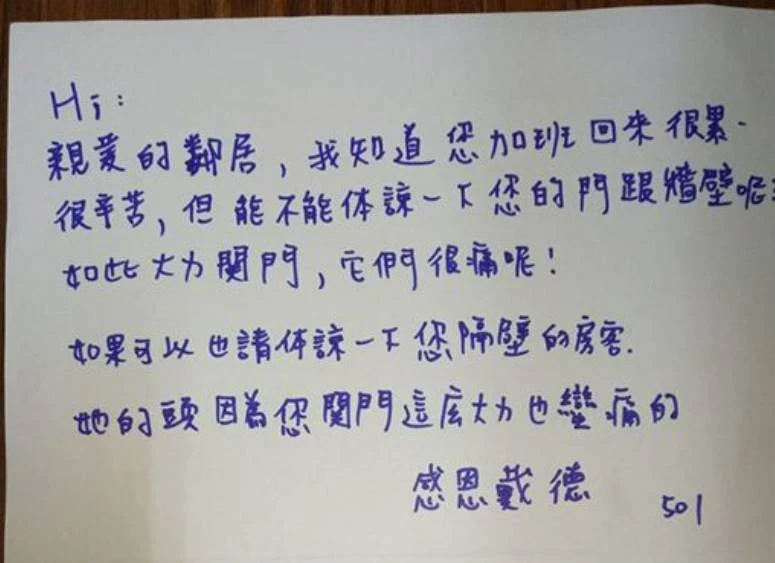 Hi:
親愛的鄰居，我知道您加班回來很累、
很辛苦，但能不能体諒一下您的門跟牆壁呢？
如此大力關門，它們很痛呢！
如果可以也請体諒一下您隔壁的房客.
她的頭因為您關門這麼大力也蠻痛的
感恩戴德
501